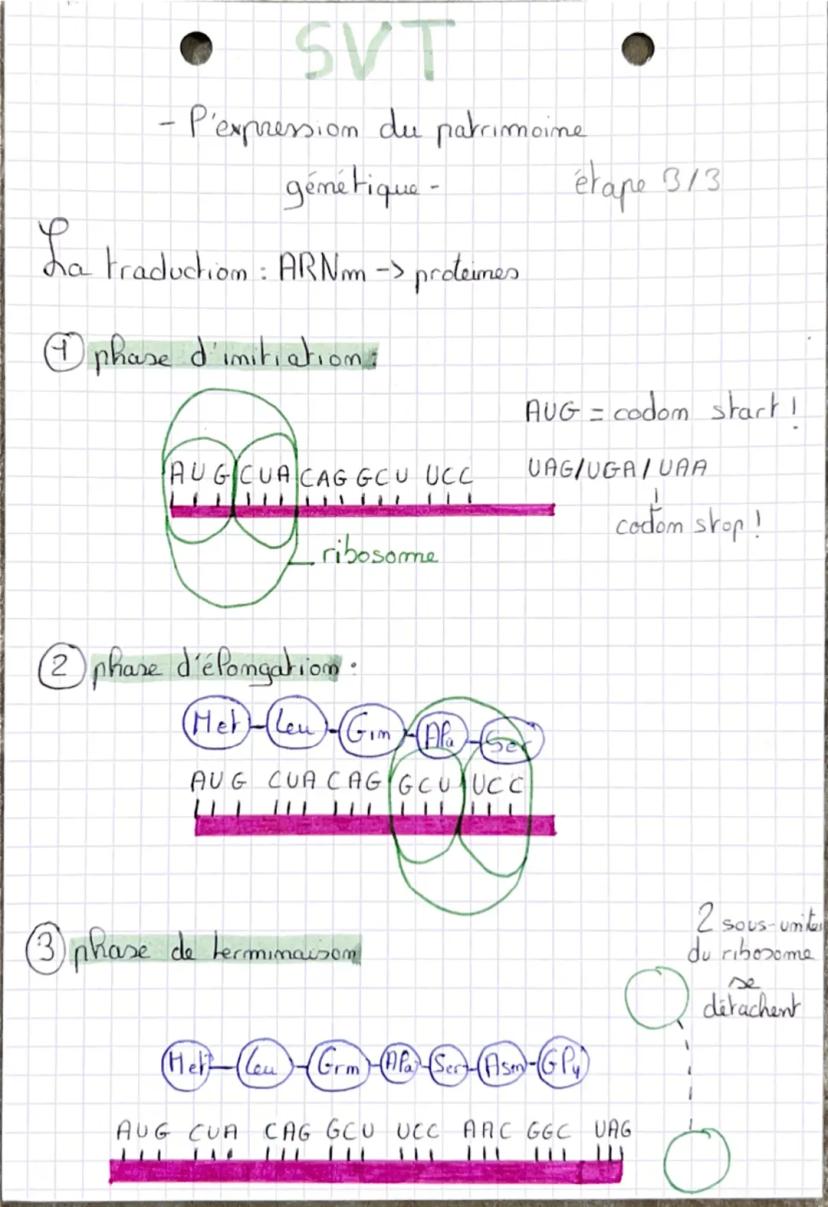 SVT
- l'expression du patrimoine
génétique -
étape 3/3
La traduction : ARNm -> proteines
1 phase d'initiation :
AUG = codon start !
UAG/UGA/UAA
codon stop !
AUG CUA CAG GCU UCC
ribosome
2 phase d'élongation :
Met-Leu-Gln-Ala-Ser
AUG CUA CAG GCU UCC
3 phase de terminaison
2 sous-unités
du ribosome
se
détachent
Met-Leu-Grm-Ala-Ser-Asn-Gly
AUG CUA CAG GCU UCC AAC GGC UAG